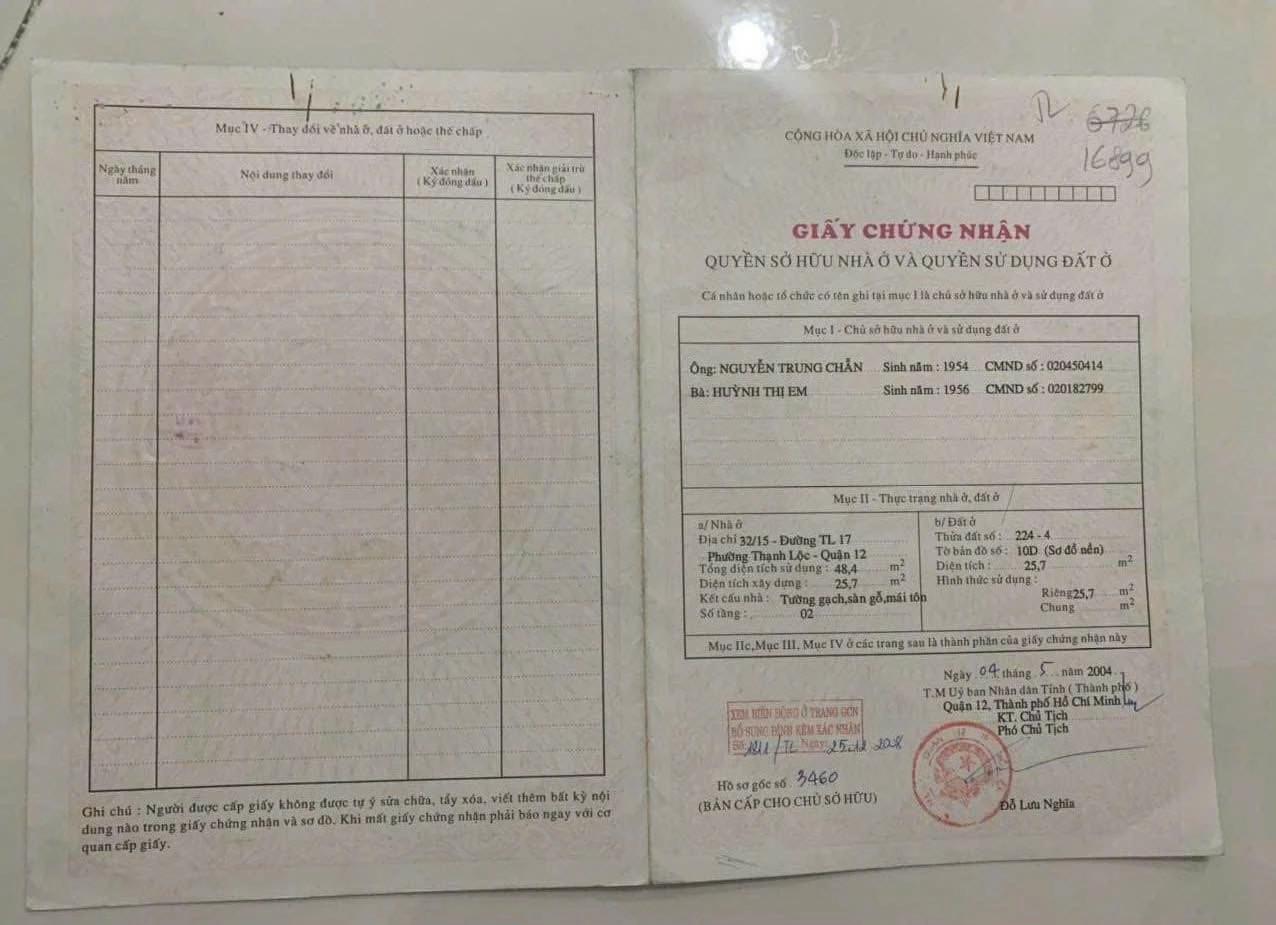 Mục IV - Thay đổi về nhà ở, đất ở hoặc thế chấp
Ngày tháng năm
Nội dung thay đổi
Xác nhận
( Ký đóng dấu )
Xác nhận giải trừ
thế chấp
( Ký đóng dấu )
Ghi chú : Người được cấp giấy không được tự ý sửa chữa, tẩy xóa, viết thêm bất kỳ nội
dung nào trong giấy chứng nhận và sơ đồ. Khi mất giấy chứng nhận phải báo ngay với cơ
quan cấp giấy.
TL 6726
16899
CỘNG HÒA XÃ HỘI CHỦ NGHĨA VIỆT NAM
Độc lập - Tự do - Hạnh phúc
GIẤY CHỨNG NHẬN
QUYỀN SỞ HỮU NHÀ Ở VÀ QUYỀN SỬ DỤNG ĐẤT Ở
Cá nhân hoặc tổ chức có tên ghi tại mục I là chủ sở hữu nhà ở và sử dụng đất ở
Mục I - Chủ sở hữu nhà ở và sử dụng đất ở
Ông: NGUYỄN TRUNG CHẴN Sinh năm : 1954 CMND số : 020450414
Bà: HUỲNH THỊ EM Sinh năm : 1956 CMND số : 020182799
Mục II - Thực trạng nhà ở, đất ở
a/ Nhà ở
Địa chỉ 32/15 - Đường TL 17
Phường Thạnh Lộc - Quận 12
Tổng diện tích sử dụng : 48,4 m2
Diện tích xây dựng : 25,7 m2
Kết cấu nhà : Tường gạch,sàn gỗ,mái tôn
Số tầng : 02
b/ Đất ở
Thửa đất số : 224 - 4
Tờ bản đồ số : 10D (Sơ đồ nền)
Diện tích : 25,7 m2
Hình thức sử dụng :
Riêng 25,7 m2
Chung m2
Mục IIc,Mục III, Mục IV ở các trang sau là thành phần của giấy chứng nhận này
Ngày 04 tháng 5 năm 2004
T.M Uỷ ban Nhân dân Tỉnh ( Thành phố )
Quận 12, Thành phố Hồ Chí Minh
KT. Chủ Tịch
Phó Chủ Tịch
Đỗ Lưu Nghĩa
XEM BIẾN ĐỘNG Ở TRANG GCN
BỔ SUNG ĐÍNH KÈM XÁC NHẬN
Số: /TL Ngày:
Hồ sơ gốc số 3460
(BẢN CẤP CHO CHỦ SỞ HỮU)